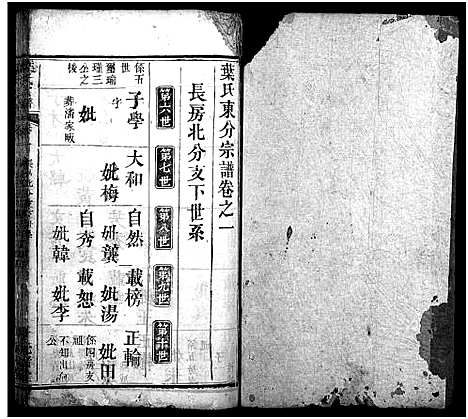 葉氏東分宗譜卷之一
長房北分支下世系
第六世 第七世 第八世 第九世 第十世
子學 大和 自然 載榜 正輪
字
妣 妣梅 妣龔 妣湯 妣田
葬潘家畈
自秀 載恕
妣韓 妣李
係五
世
瑾三
公之
後
不知出何
公